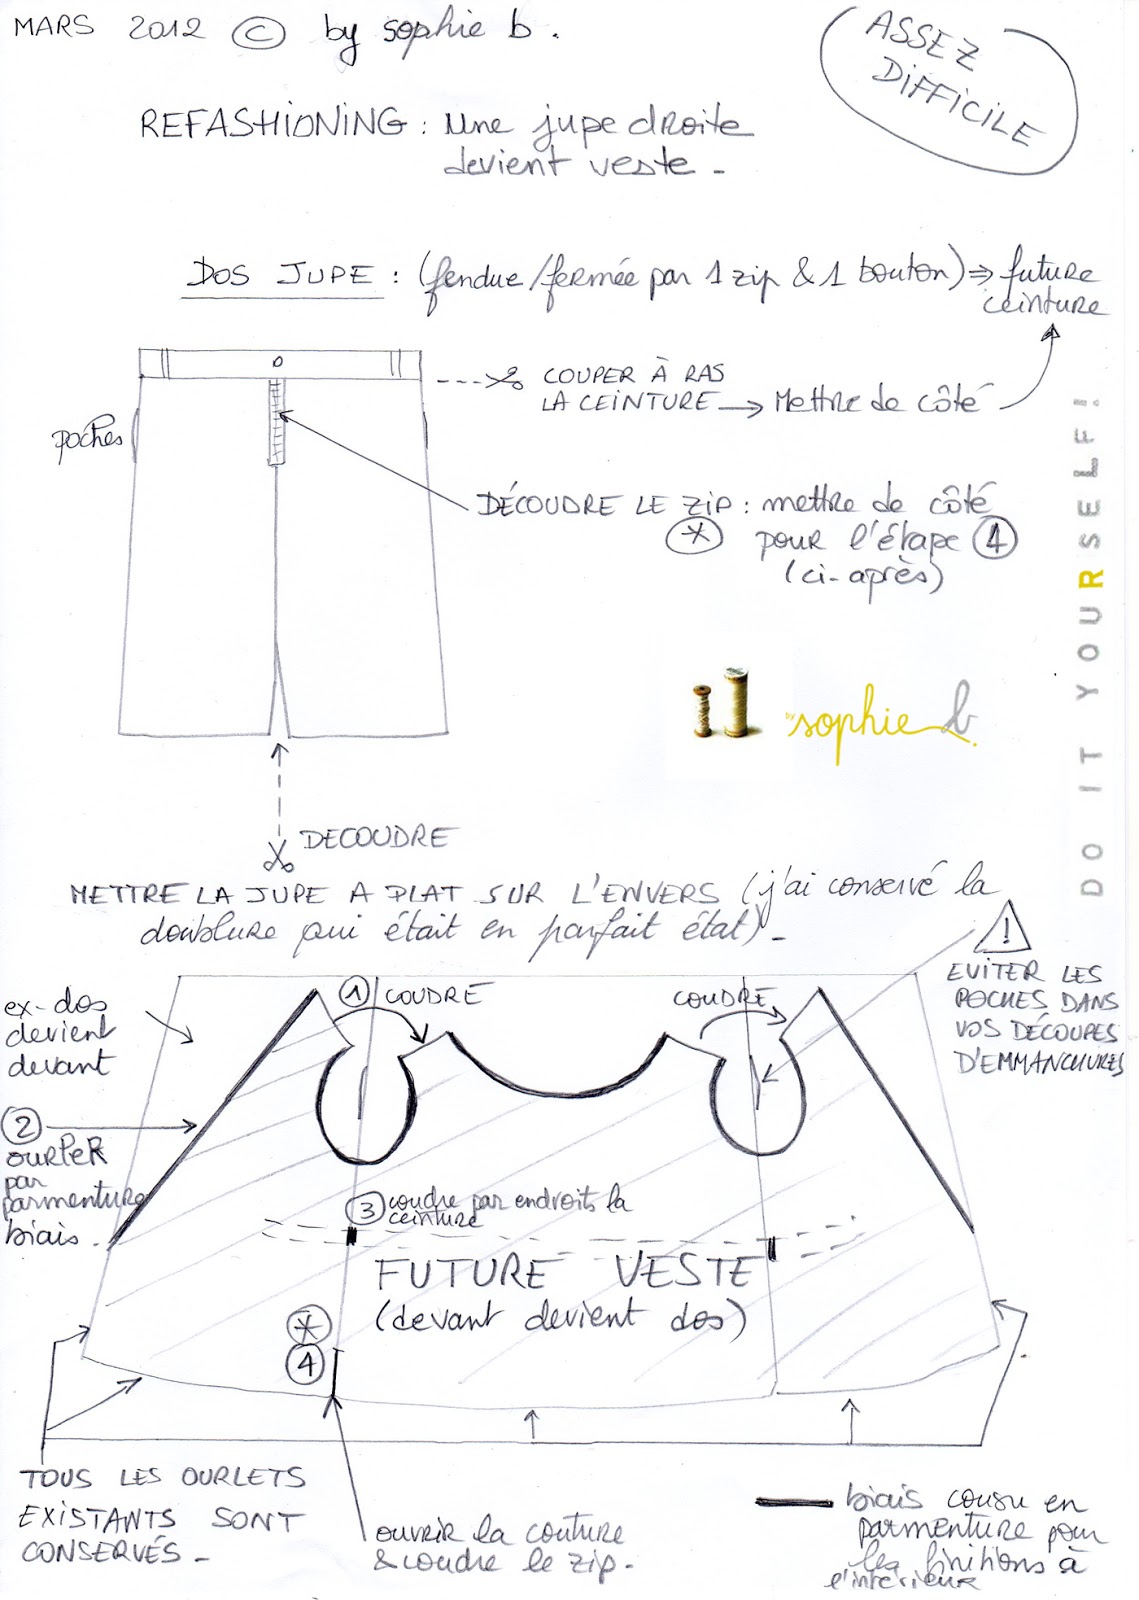 MARS 2012 © by sophie b.
ASSEZ
DIFFICILE
REFASHIONING : Une jupe droite
devient veste -
DOS JUPE : (fendue/fermée par 1 zip & 1 bouton) ⇒ future
ceinture
COUPER À RAS
LA CEINTURE → Mettre de côté
poches
DÉCOUDRE LE ZIP : mettre de côté
* pour l'étape 4
(ci-après)
by sophie b.
DO IT YOURSELF!
DECOUDRE
METTRE LA JUPE A PLAT SUR L'ENVERS (j'ai conservé la
doublure qui était en parfait état) -
!
EVITER LES
POCHES DANS
VOS DÉCOUPES
D'EMMANCHURES
ex-dos
devient
devant
1 COUDRE
COUDRE
2
OURLER
par
parmenture
biais.
3 coudre par endroits la
ceinture
FUTURE VESTE
(devant devient dos)
*
4
TOUS LES OURLETS
EXISTANTS SONT
CONSERVÉS -
ouvrir la couture
& coudre le zip.
biais cousu en
parmenture pour
les finitions à
l'intérieur